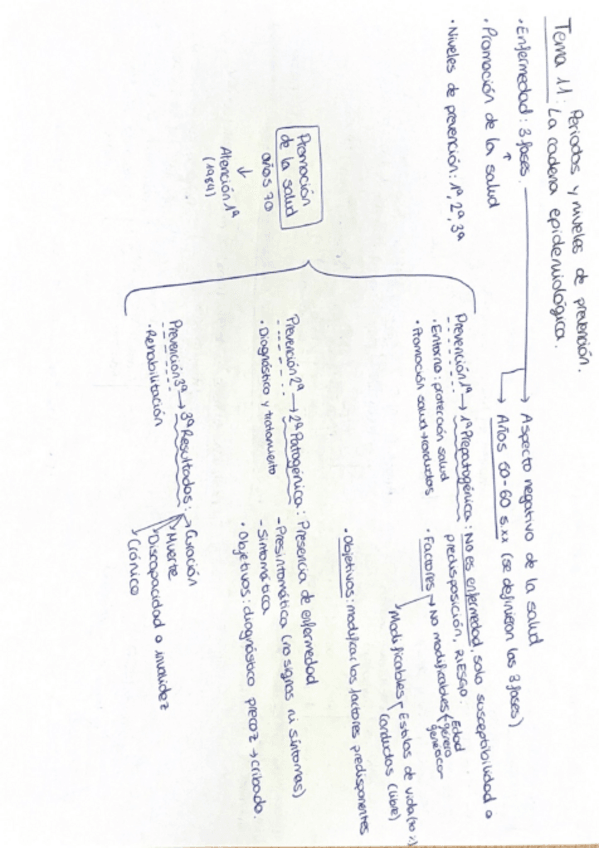 Tema 11: Periodos y niveles de prevención.
La cadena epidemiológica.
· Enfermedad: 3 fases.
→ Aspecto negativo de la salud
→ Años 50-60 s.xx (se definieron las 3 fases)
· Promoción de la salud
· Niveles de prevención: 1ª, 2ª, 3ª
Promoción
de la salud
años 70
↓
Atención 1ª
(1984)
Prevención 1ª → 1ª Prepatogénica: No es enfermedad, solo susceptibilidad o
predisposición, RIESGO.
· Entorno: protección salud
· Promoción salud → conductas
· Factores → No modificables
Edad
género
genética
Modificables
Estilos de vida
Conductas (libre)
· Objetivos: modificar los factores predisponentes
Prevención 2ª → 2ª Patogénica: Presencia de enfermedad
· Diagnóstico y tratamiento
- Presintomática (no signos ni síntomas)
- Sintomática
· Objetivos: diagnóstico precoz → cribado.
Prevención 3ª → 3ª Resultados:
· Rehabilitación
Curación
Muerte
Discapacidad o invalidez
Crónico